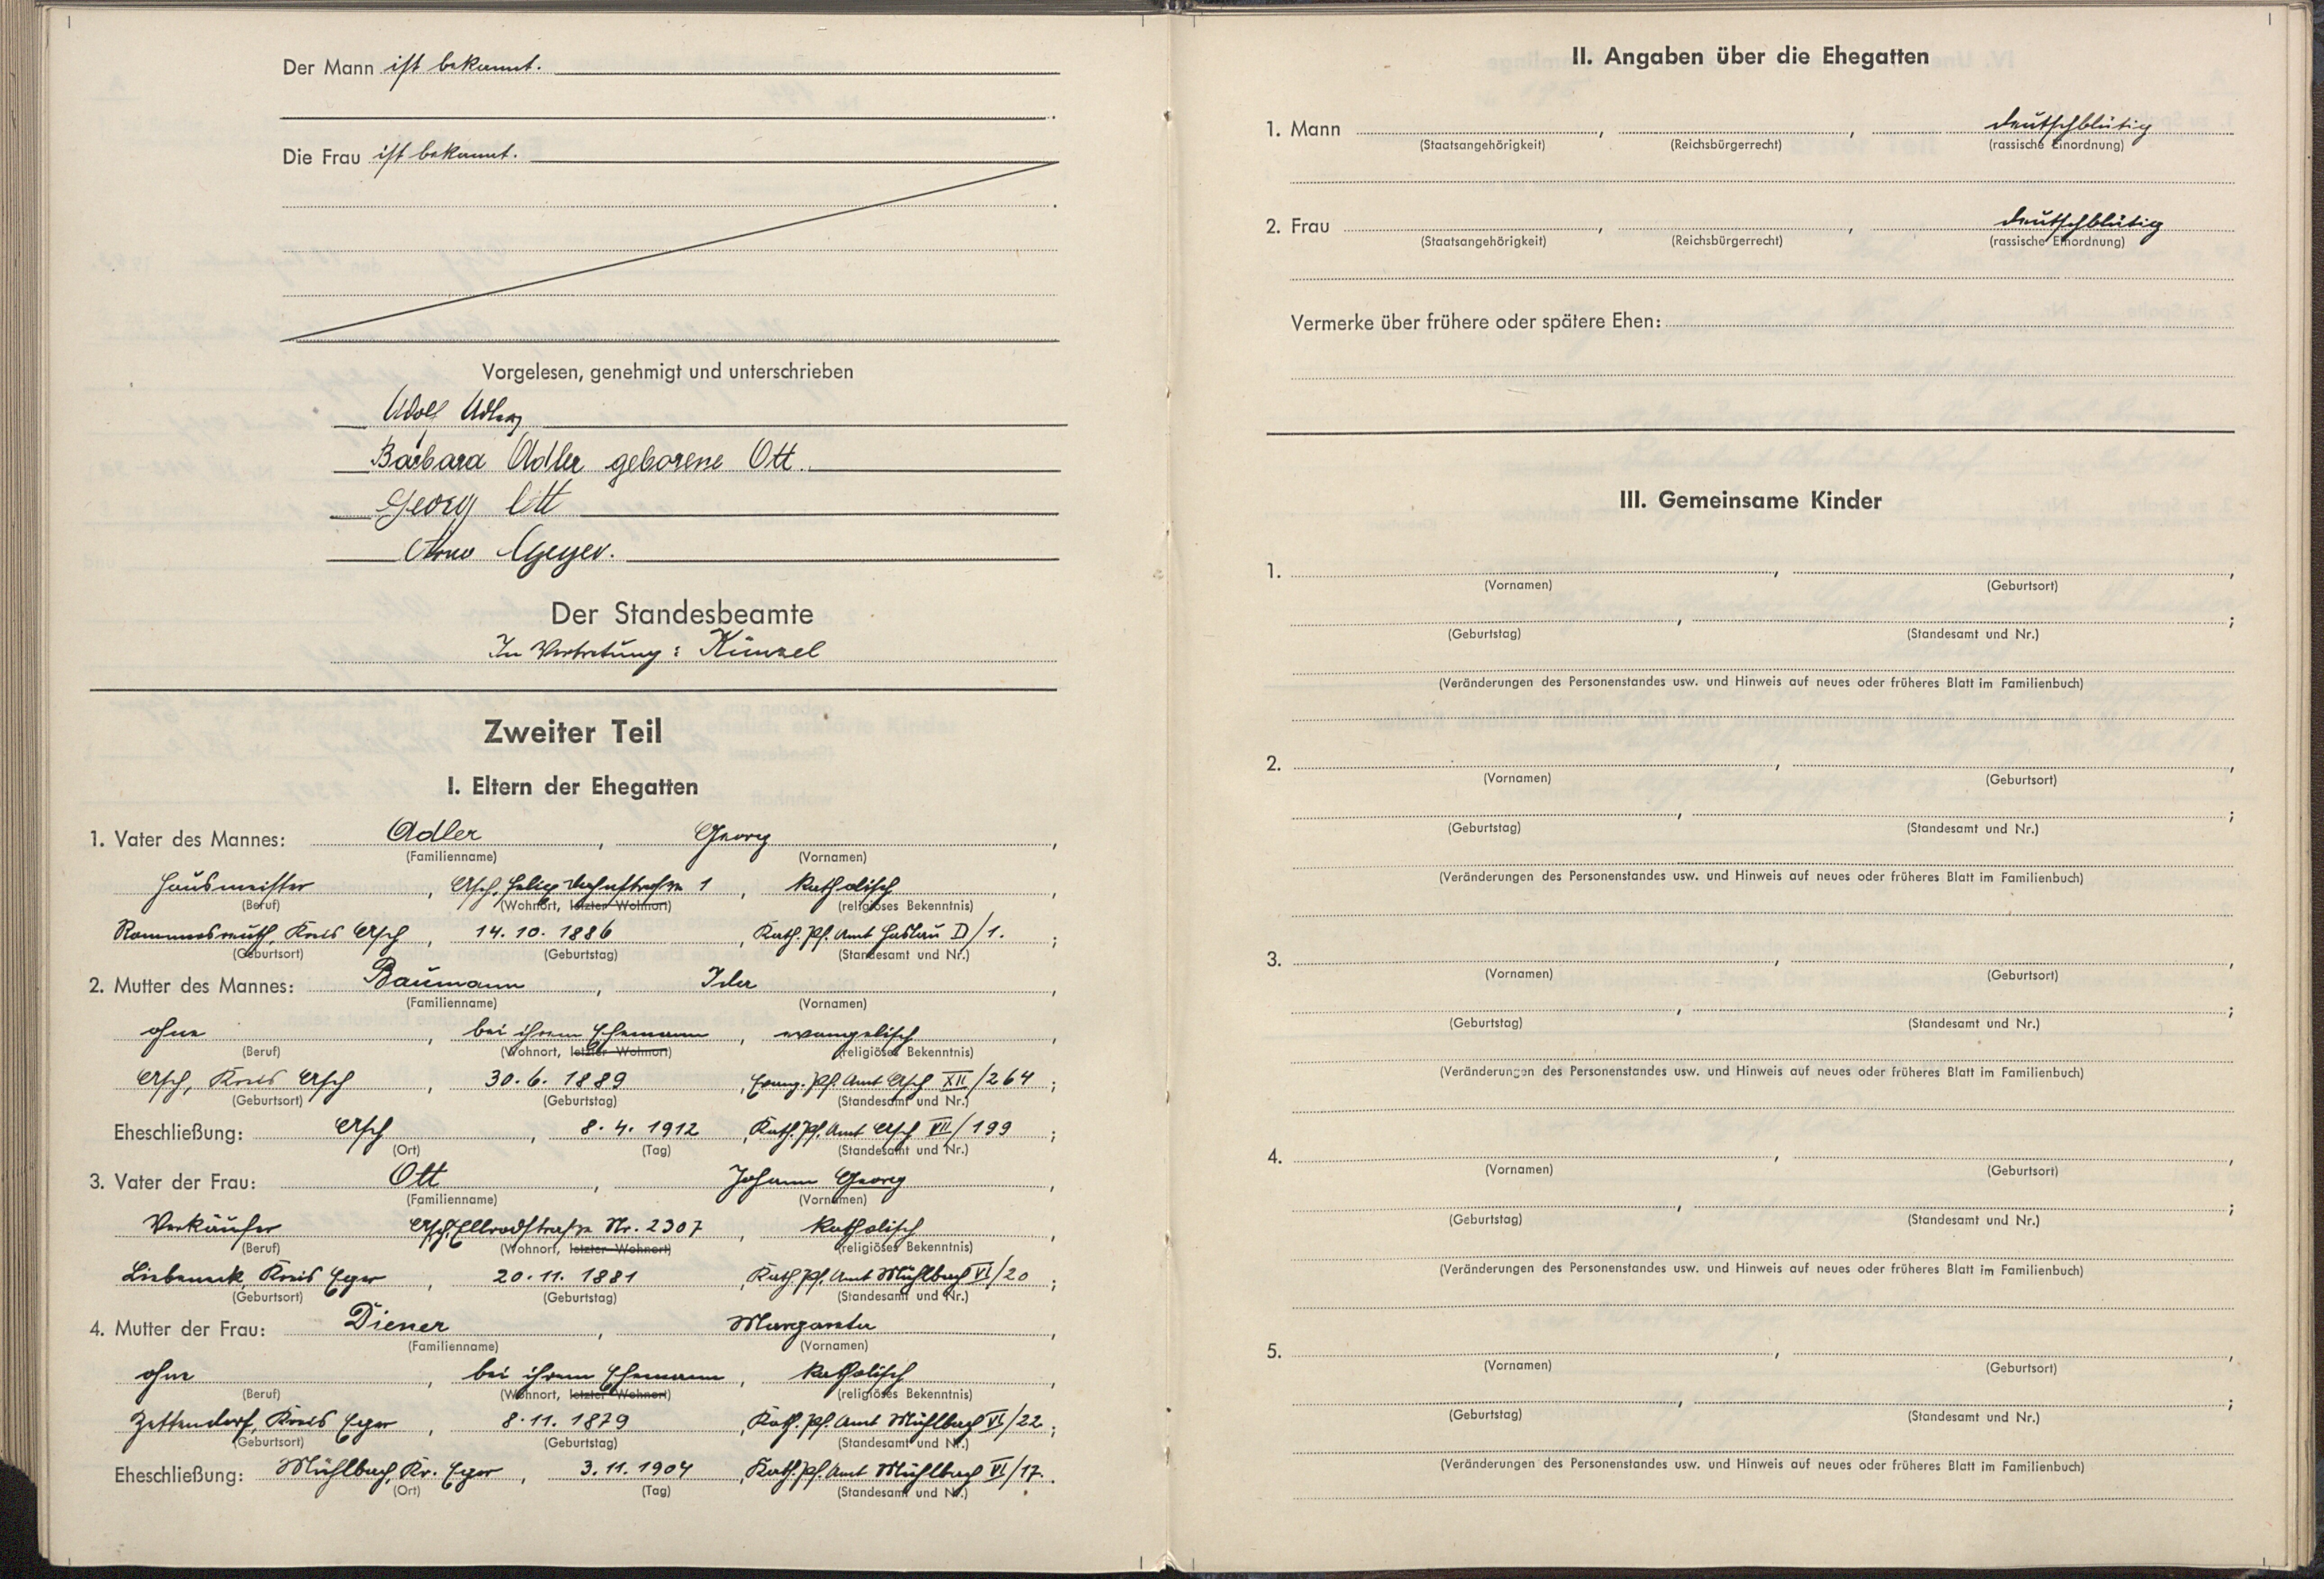 Der Mann ist bekannt.
Die Frau ist bekannt.
Vorgelesen, genehmigt und unterschrieben
Adolf Adler
Barbara Adler geborene Ott.
Georg Ott
Arno Geyer.
Der Standesbeamte
In Vertretung: Künzel
Zweiter Teil
I. Eltern der Ehegatten
1. Vater des Mannes: Adler, Georg,
(Familienname) (Vornamen)
Hausmeister, Asch, 1, katholisch,
(Beruf) (Wohnort, letzter Wohnort) (religiöses Bekenntnis)
Rommersreuth, Kreis Asch, 14.10.1886, Kath. Pf. Amt Haslau D/1.;
(Geburtsort) (Geburtstag) (Standesamt und Nr.)
2. Mutter des Mannes: Baumann, Ida,
(Familienname) (Vornamen)
ohne, bei ihrem Ehemann, evangelisch,
(Beruf) (Wohnort, letzter Wohnort) (religiöses Bekenntnis)
Asch, Kreis Asch, 30.6.1889, Evang. Pf. Amt Asch XII/264;
(Geburtsort) (Geburtstag) (Standesamt und Nr.)
Eheschließung: Asch, 8.4.1912, Kath. Pf. Amt Asch VII/199;
(Ort) (Tag) (Standesamt und Nr.)
3. Vater der Frau: Ott, Johann Georg,
(Familienname) (Vornamen)
Verkäufer Asch, Ellrodstrasse Nr. 2307, katholisch,
(Beruf) (Wohnort, letzter Wohnort) (religiöses Bekenntnis)
Liebeneck, Kreis Eger, 20.11.1881, Kath. Pf. Amt Mühlbach VI/20;
(Geburtsort) (Geburtstag) (Standesamt und Nr.)
4. Mutter der Frau: Diener, Margareta,
(Familienname) (Vornamen)
ohne, bei ihrem Ehemann, katholisch,
(Beruf) (Wohnort, letzter Wohnort) (religiöses Bekenntnis)
Zettendorf, Kreis Eger, 8.11.1879, Kath. Pf. Amt Mühlbach VI/22;
(Geburtsort) (Geburtstag) (Standesamt und Nr.)
Eheschließung: Mühlbach, Kr. Eger, 3.11.1904, Kath. Pf. Amt Mühlbach VI/17.
(Ort) (Tag) (Standesamt und Nr.)
II. Angaben über die Ehegatten
1. Mann , , deutschblütig
(Staatsangehörigkeit) (Reichsbürgerrecht) (rassische Einordnung)
2. Frau , , deutschblütig
(Staatsangehörigkeit) (Reichsbürgerrecht) (rassische Einordnung)
Vermerke über frühere oder spätere Ehen:
III. Gemeinsame Kinder
1. , ,
(Vornamen) (Geburtsort)
, ;
(Geburtstag) (Standesamt und Nr.)
(Veränderungen des Personenstandes usw. und Hinweis auf neues oder früheres Blatt im Familienbuch)
2. , ,
(Vornamen) (Geburtsort)
, ;
(Geburtstag) (Standesamt und Nr.)
(Veränderungen des Personenstandes usw. und Hinweis auf neues oder früheres Blatt im Familienbuch)
3. , ,
(Vornamen) (Geburtsort)
, ;
(Geburtstag) (Standesamt und Nr.)
(Veränderungen des Personenstandes usw. und Hinweis auf neues oder früheres Blatt im Familienbuch)
4. , ,
(Vornamen) (Geburtsort)
, ;
(Geburtstag) (Standesamt und Nr.)
(Veränderungen des Personenstandes usw. und Hinweis auf neues oder früheres Blatt im Familienbuch)
5. , ,
(Vornamen) (Geburtsort)
, ;
(Geburtstag) (Standesamt und Nr.)
(Veränderungen des Personenstandes usw. und Hinweis auf neues oder früheres Blatt im Familienbuch)